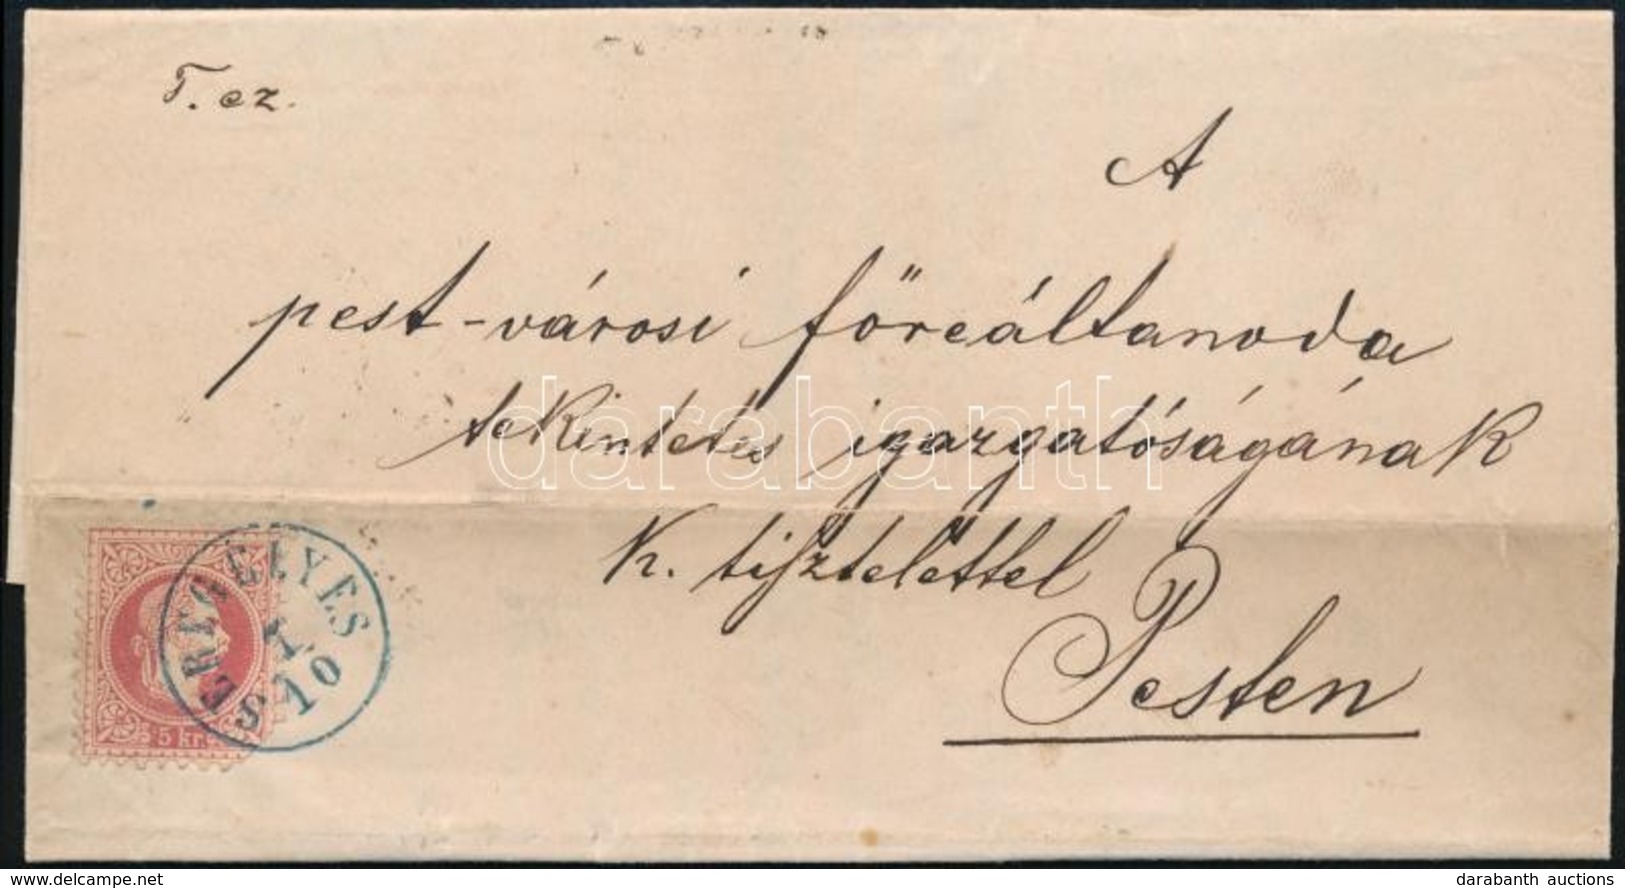 T. cz.
A
pest-városi főreáltanoda
tekintetes igazgatóságának
K. tisztelettel
Pesten
5 kr.
10
darabanth
delcampe.net
darabanth auctions